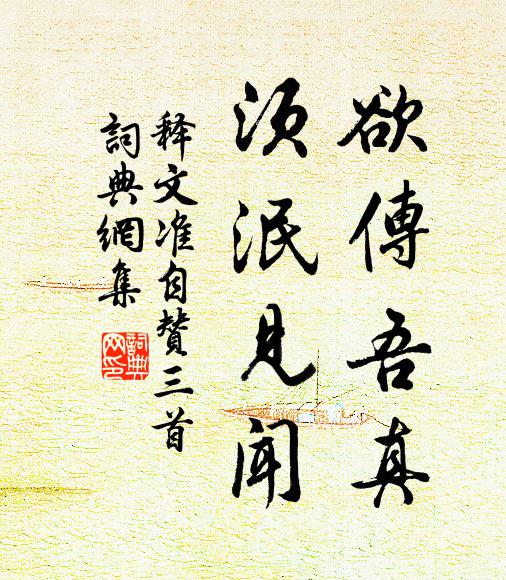 欲傳吾真
須泯見聞
释文准自贊三首
詞典網集
詞典
网印